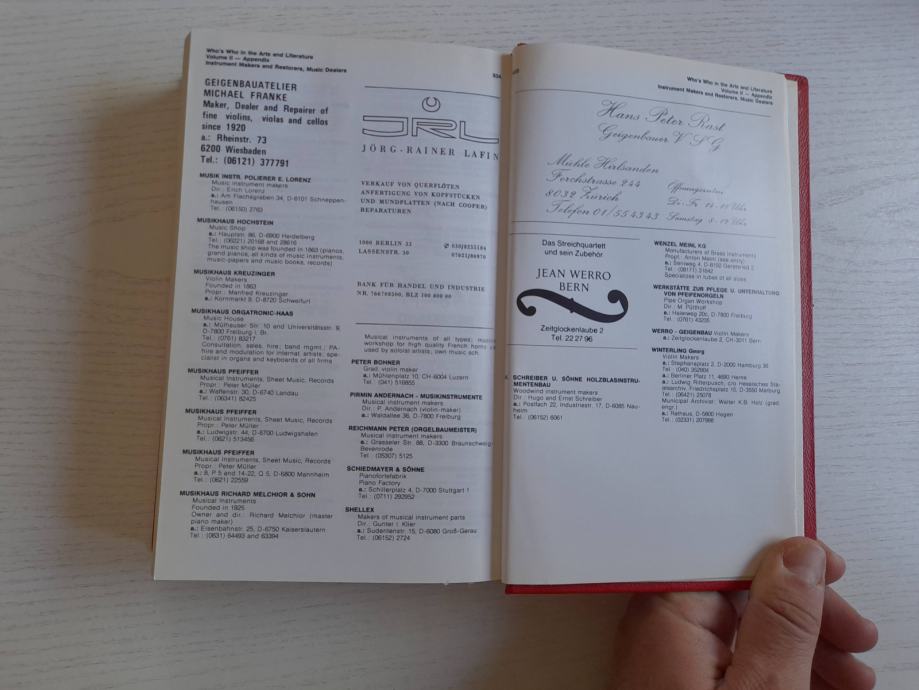 Who's Who in the Arts and Literature
Volume II — Appendix
Instrument Makers and Restorers, Music Dealers
GEIGENBAUATELIER
MICHAEL FRANKE
Maker, Dealer and Repairer of
fine violins, violas and cellos
since 1920
a.: Rheinstr. 73
6200 Wiesbaden
Tel.: (06121) 377791
MUSIK INSTR. POLIERER E. LORENZ
Music instrument makers
Dir.: Erich Lorenz
a.: Am Flachsgraben 34, D-6101 Schneppen-
hausen
Tel.: (06150) 2763
MUSIKHAUS HOCHSTEIN
Music Shop
a.: Hauptstr. 86, D-6900 Heidelberg
Tel.: (06221) 20168 and 28616
The music shop was founded in 1863 (pianos,
grand pianos, all kinds of music instruments,
music-papers and music books, records)
MUSIKHAUS KREUZINGER
Violin Makers
Founded in 1863
Propr.: Manfred Kreuzinger
a.: Kornmarkt 9, D-8720 Schweifurt
MUSIKHAUS ORGATRONIC-HAAS
Music House
a.: Mülheuser Str. 10 and Universitätsstr. 9,
D-7800 Freiburg i. Br.
Tel.: (0761) 83217
Consultation, sales, hire; band mgmt.; PA-
hire and modulation for internat. artists; spe-
cialist in organs and keyboards of all firms
MUSIKHAUS PFEIFFER
Musical Instruments, Sheet Music, Records
Propr.: Peter Müller
a.: Waffenstr. 30, D-6740 Landau
Tel.: (06341) 82425
MUSIKHAUS PFEIFFER
Musical Instruments, Sheet Music, Records
Propr.: Peter Müller
a.: Ludwigstr. 44, D-6700 Ludwigshafen
Tel.: (0621) 513456
MUSIKHAUS PFEIFFER
Musical Instruments, Sheet Music, Records
Propr.: Peter Müller
a.: 8, P 5 and 14-22, Q 5, D-6800 Mannheim
Tel.: (0621) 22559
MUSIKHAUS RICHARD MELCHIOR & SOHN
Musical Instruments
Founded in 1925
Owner and dir.: Richard Melchior (master
piano maker)
a.: Eisenbahnstr. 25, D-6750 Kaiserslautern
Tel.: (0631) 64493 and 63394
JRL
JÖRG-RAINER LAFIN
VERKAUF VON QUERFLÖTEN
ANFERTIGUNG VON KOPFSTÜCKEN
UND MUNDPLATTEN (NACH COOPER)
REPARATUREN
1000 BERLIN 33
LASSENSTR. 30
BANK FÜR HANDEL UND INDUSTRIE
Musical instruments of all types;
workshop for high quality French horns
used by soloist artists; own music sch.
PETER BOHNER
Grad. violin maker
a.: Mühlenplatz 10, CH-6004 Luzern
Tel.: (041) 516855
PIRMIN ANDERNACH - MUSIKINSTRUMENTE
Musical instrument makers
Dir.: P. Andernach (violin-maker)
a.: Waldallee 36, D-7800 Freiburg
REICHMANN PETER (ORGELBAUMEISTER)
Musical instrument makers
a.: Grasseler Str. 88, D-3300 Braunschweig-
Bevenrode
Tel.: (05307) 5125
SCHIEDMAYER & SÖHNE
Pianofortefabrik
Piano Factory
a.: Schillerplatz 4, D-7000 Stuttgart 1
Tel.: (0711) 292952
SHELLEX
Makers of musical instrument parts
Dir.: Gunter I. Klier
a.: Sudentenstr. 15, D-6080 Groß-Gerau
Tel.: (06152) 2724
Who's Who in the Arts and Literature
Volume II — Appendix
Instrument Makers and Restorers, Music Dealers
Hans Peter Rast
Geigenbauer V.S.G
Mühle Hirlsanden
Forchstrasse 244
8032 Zürich
Telefon 01/55 43 43
Öffnungszeiten
Di - Fr. 14-18 Uhr
Das Streichquartett
und sein Zubehör
JEAN WERRO
BERN
Zeitglockenlaube 2
Tel. 22 27 96
SCHREIBER U. SÖHNE HOLZBLASINSTRU-
MENTENBAU
Woodwind instrument makers
Dir.: Hugo and Ernst Schreiber
a.: Postfach 22, Industriestr. 17, D-6085 Nau-
heim
Tel.: (06152) 6061
WENZEL MEINL KG
Manufacturers of Brass Instruments
Propr.: Anton Meinl (see entry)
a.: Seniweg 4, D-8192 Geretsried 2
Tel.: (08171) 31642
Specialize in tubas of all sizes
WERKSTÄTTE ZUR PFLEGE U. UNTERHALTUNG
VON PFEIFENORGELN
Pipe Organ Workshop
Dir.: M. Pürthoff
a.: Haierweg 20c, D-7800 Freiburg
Tel.: (0761) 43235
WERRO - GEIGENBAU Violin Makers
a.: Zeitglockenlaube 2, CH-3011 Bern
WINTERLING Georg
Violin Makers
a.: Stephansplatz 2, D-2000 Hamburg 36
Tel.: (040) 352904
a.: Berliner Platz 11, 4690 Herne
a.: Ludwig Ritterpusch, c/o Hessisches Sta-
atsarchiv, Friedrichsplatz 15, D-3550 Marburg
Tel.: (06421) 25078
Municipal Archivist: Walter K.B. Holz (grad.
engr.)
a.: Rathaus, D-5800 Hagen
Tel.: (02331) 207986